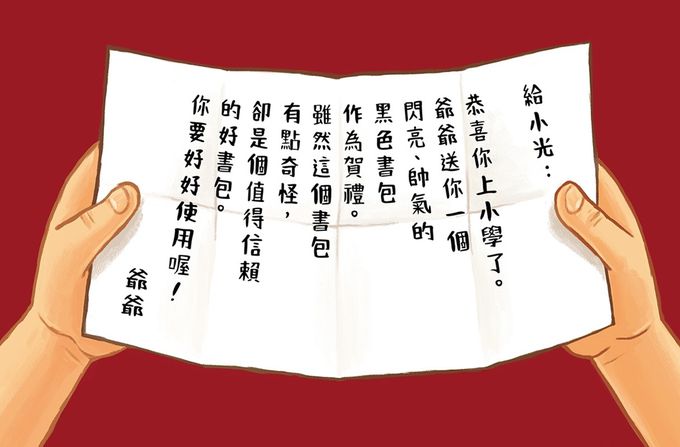 給小光：
恭喜你上小學了。
爺爺送你一個
閃亮、帥氣的
黑色書包
作為賀禮。
雖然這個書包
有點奇怪，
卻是個值得信賴
的好書包。
你要好好使用喔！
爺爺